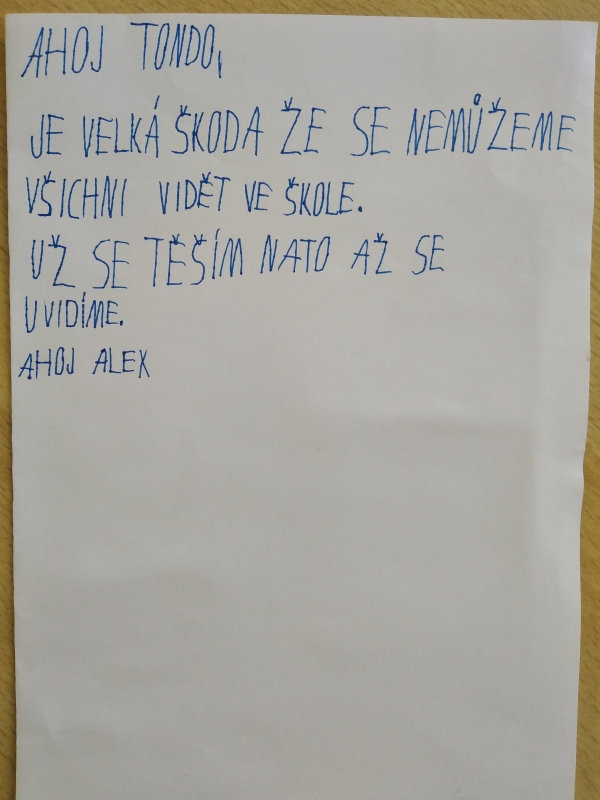 AHOJ TONDO,
JE VELKÁ ŠKODA ŽE SE NEMŮŽEME
VŠICHNI VIDĚT VE ŠKOLE.
UŽ SE TĚŠÍM NATO AŽ SE
UVIDÍME.
AHOJ ALEK